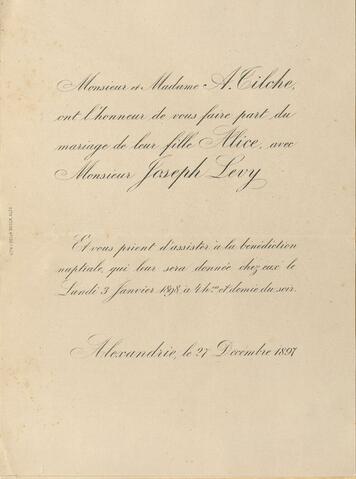 Monsieur et Madame A. Tilche,
ont l'honneur de vous faire part du
mariage de leur fille Alice, avec
Monsieur Joseph Levy
Et vous prient d'assister à la bénédiction
nuptiale, qui leur sera donnée chez eux le
Lundi 3 Janvier 1898 à 4 h.res et demie du soir.
Alexandrie, le 27 Décembre 1897